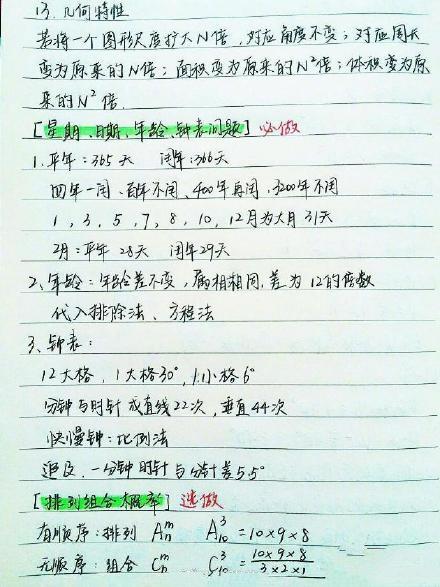 13. 几何特性
若将一个图形尺度扩大N倍，对应角度不变；对应周长
变为原来的N倍；面积变为原来的N²倍；体积变为原
来的N³倍.
[星期、日期、年龄、钟表问题] 必做
1. 平年：365天 闰年：366天
四年一闰、百年不闰、400年再闰，3200年不闰
1，3，5，7，8，10，12月为大月 31天
2月：平年 28天 闰年29天
2、年龄：年龄差不变，属相相同，差为12的倍数
代入排除法、方程法
3、钟表：
12大格，1大格30°，1小格6°
分钟与时针成直线22次，垂直44次
快慢钟：比例法
追及，一分钟时针与分针差5.5°
[排列组合概率] 选做
有顺序：排列 A_n^m A_10^3 = 10×9×8
无顺序：组合 C_n^m C_10^3 = 10×9×8 / 3×2×1